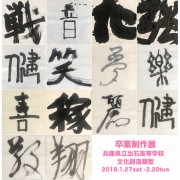 戦 音
笑 夢
喜 稼 麗
翔
卒業制作展
兵庫県立出石高等学校
文化創造類型
2018.1.27sat -2.20tue